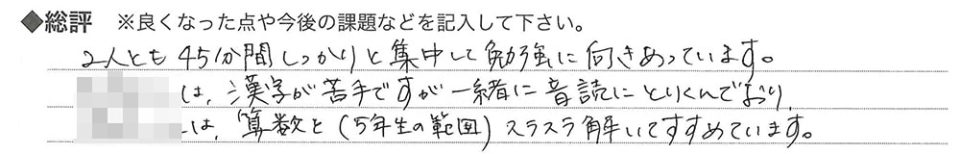 ◆総評 ※良くなった点や今後の課題などを記入して下さい。
2人とも45分間しっかりと集中して勉強に向きあっています。
は、漢字が苦手ですが一緒に音読にとりくんでおり、
は、算数と(5年生の範囲)スラスラ解いてすすめています。